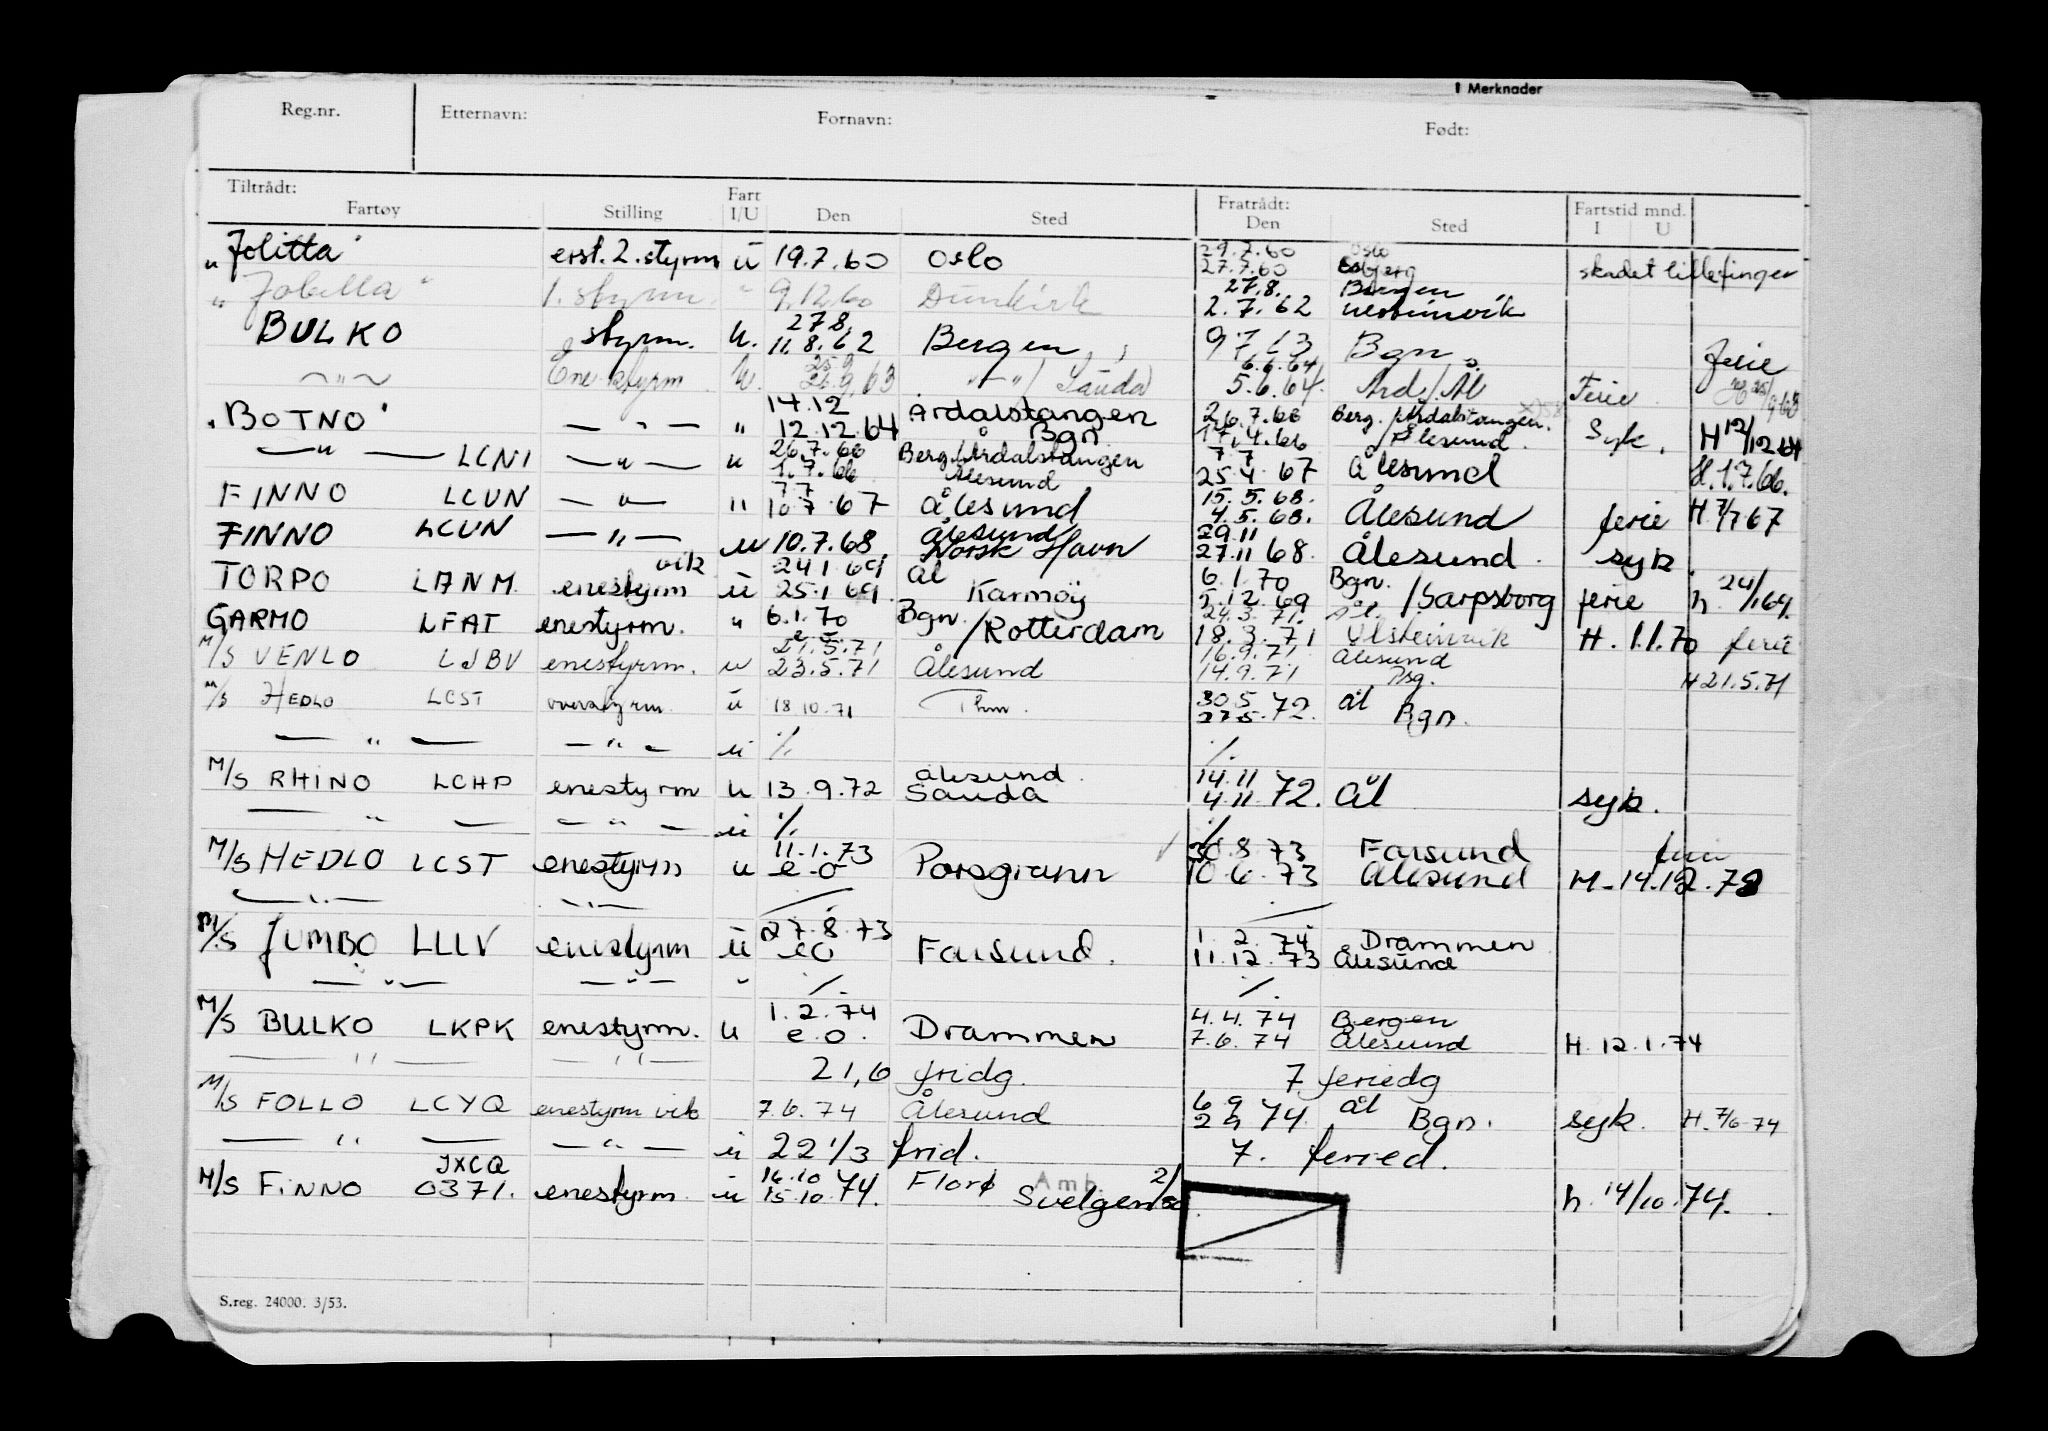 Merknader
Reg.nr. Etternavn: Fornavn: Født:
Tiltrådt: Fart Fratrådt: Fartstid mnd.
Fartøy Stilling I/U Den Sted Den Sted I U
29.7.60 Oslo
"Jolitta" erst. 2. styrm ü 19.7.60 Oslo 27.7.60 Esbjerg skadet lillefinger
27.8. Bergen
"Jobella" 1. styrm. " 9.12.60 Dünkirk 2.7.62
27.8.
BULKO styrm. u. 11.8.62 Bergen 9.7.63 Bgn. ferie
25.9 6.6.64
— " — Enestyrm u. 26.9.63 — " — / Sauda 5.6.64. Ard./Ål Ferie
14.12 Årdalstangen 26.7.66 Berg./Årdalstangen.
"BOTNO" — " — " 12.12.64 Bgn 17.4.66 Ålesund. Syk. H 12/12 64
26.7.66 Berg./Årdalstangen 7.7
— " — LCNI — " — u 1.7.66 Ålesund 25.4.67 Ålesund H.1.7.66.
7.7 15.5.68.
FINNO LCUN — " — " 10.7.67 Ålesund 4.5.68. Ålesund ferie H. 7/7 67
Ålesund 29.11
FINNO LCUN — " — u 10.7.68. Norsk Havn 27.11 68. Ålesund. syk.
vik 24.1.69 Ål 6.1.70 Bgn.
TORPO LANM. enestyrm ü 25.1 69. Karmøy 5.12.69 /Sarpsborg ferie h. 24/1 69.
6.1.70 Bgn. 24.3.71. Ål.
GARMO LFAT enestyrm. " e.o. /Rotterdam 18.3.71 Ulsteinvik H. 1.1.70 ferie
21.5.71 16.9.71 Ålesund
M/S VENLO LJBV enestyrm. u 23.5.71 Ålesund 14.9.71 Psg. H 21.5.71
30.5
M/S HEDLO LCST overstyrm ü 18 10.71 Thm. 27.5.72. Ål Bgn.
— " — — " — ü ./. ./.
Ålesund. 14.11
M/S RHINO LCHP enestyrm u 13.9.72 Sauda 4.11.72. Ål syk.
— " — — " — ü ./. ./.
11.1.73 30.8.73 Farsund
M/S HEDLO LCST enestyrm u e.o Porsgrunn 10.6.73 Ålesund
— " — — " —
27.8.73 1.2.74 Drammen
M/S JUMBO LLLV enestyrm ü eo Farsund. 11.12.73 Ålesund
— " — — " — " ./. ./.
1.2.74 4.4.74 Bergen
M/S BULKO LKPK enestyrm. u e.o. Drammen 7.6.74 Ålesund H.12.1.74
— " — — " — 21,6 fridg. 7 feriedg
6 9
M/S FOLLO LCYQ enestyrm vik 7.6.74 Ålesund 2 9 74. Ål Bgn. syk. H. 7/6 74
— " — — " — ü 22 1/3 frid. 7. feried.
JXCQ 16.10 Florø Amb.
M/S FINNO 0371. enestyrm. ü 15.10.74. Svelgen h. 14/10.74.
S.reg. 24000. 3/53.